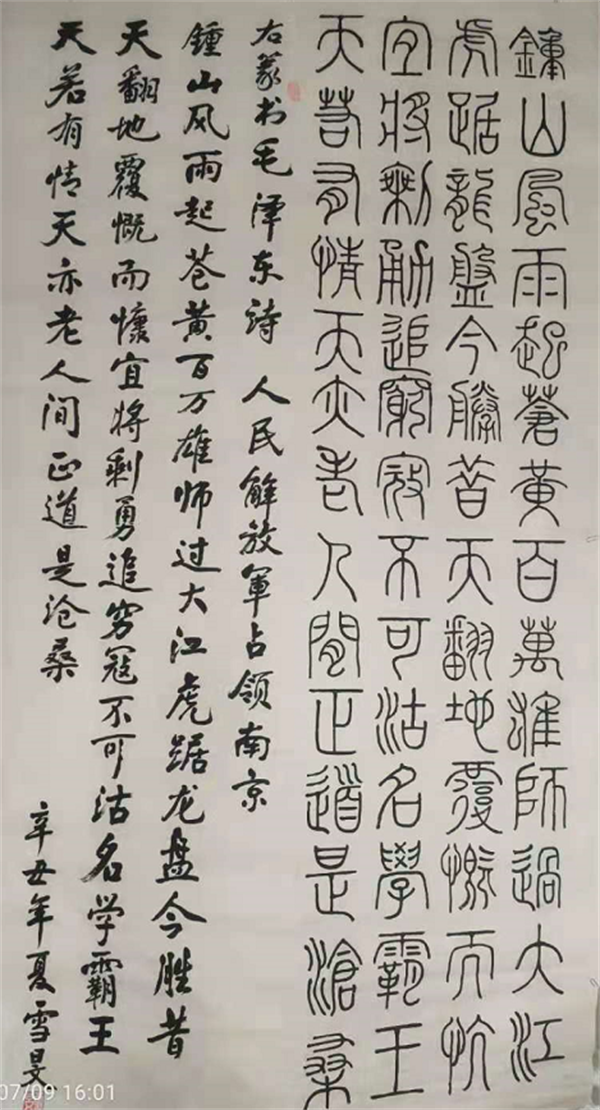 鍾山風雨起蒼黃百萬雄師過大江
虎踞龍盤今勝昔天翻地覆慨而忼
宜將剩勇追窮寇不可沽名學霸王
天若有情天亦老人間正道是滄桑
右篆书毛泽东诗 人民解放軍占领南京
鍾山风雨起苍黄百万雄师过大江虎踞龙盘今胜昔
天翻地覆慨而慷宜将剩勇追穷寇不可沽名学霸王
天若有情天亦老人间正道是沧桑
辛丑年夏雪旻
07/09 16:01